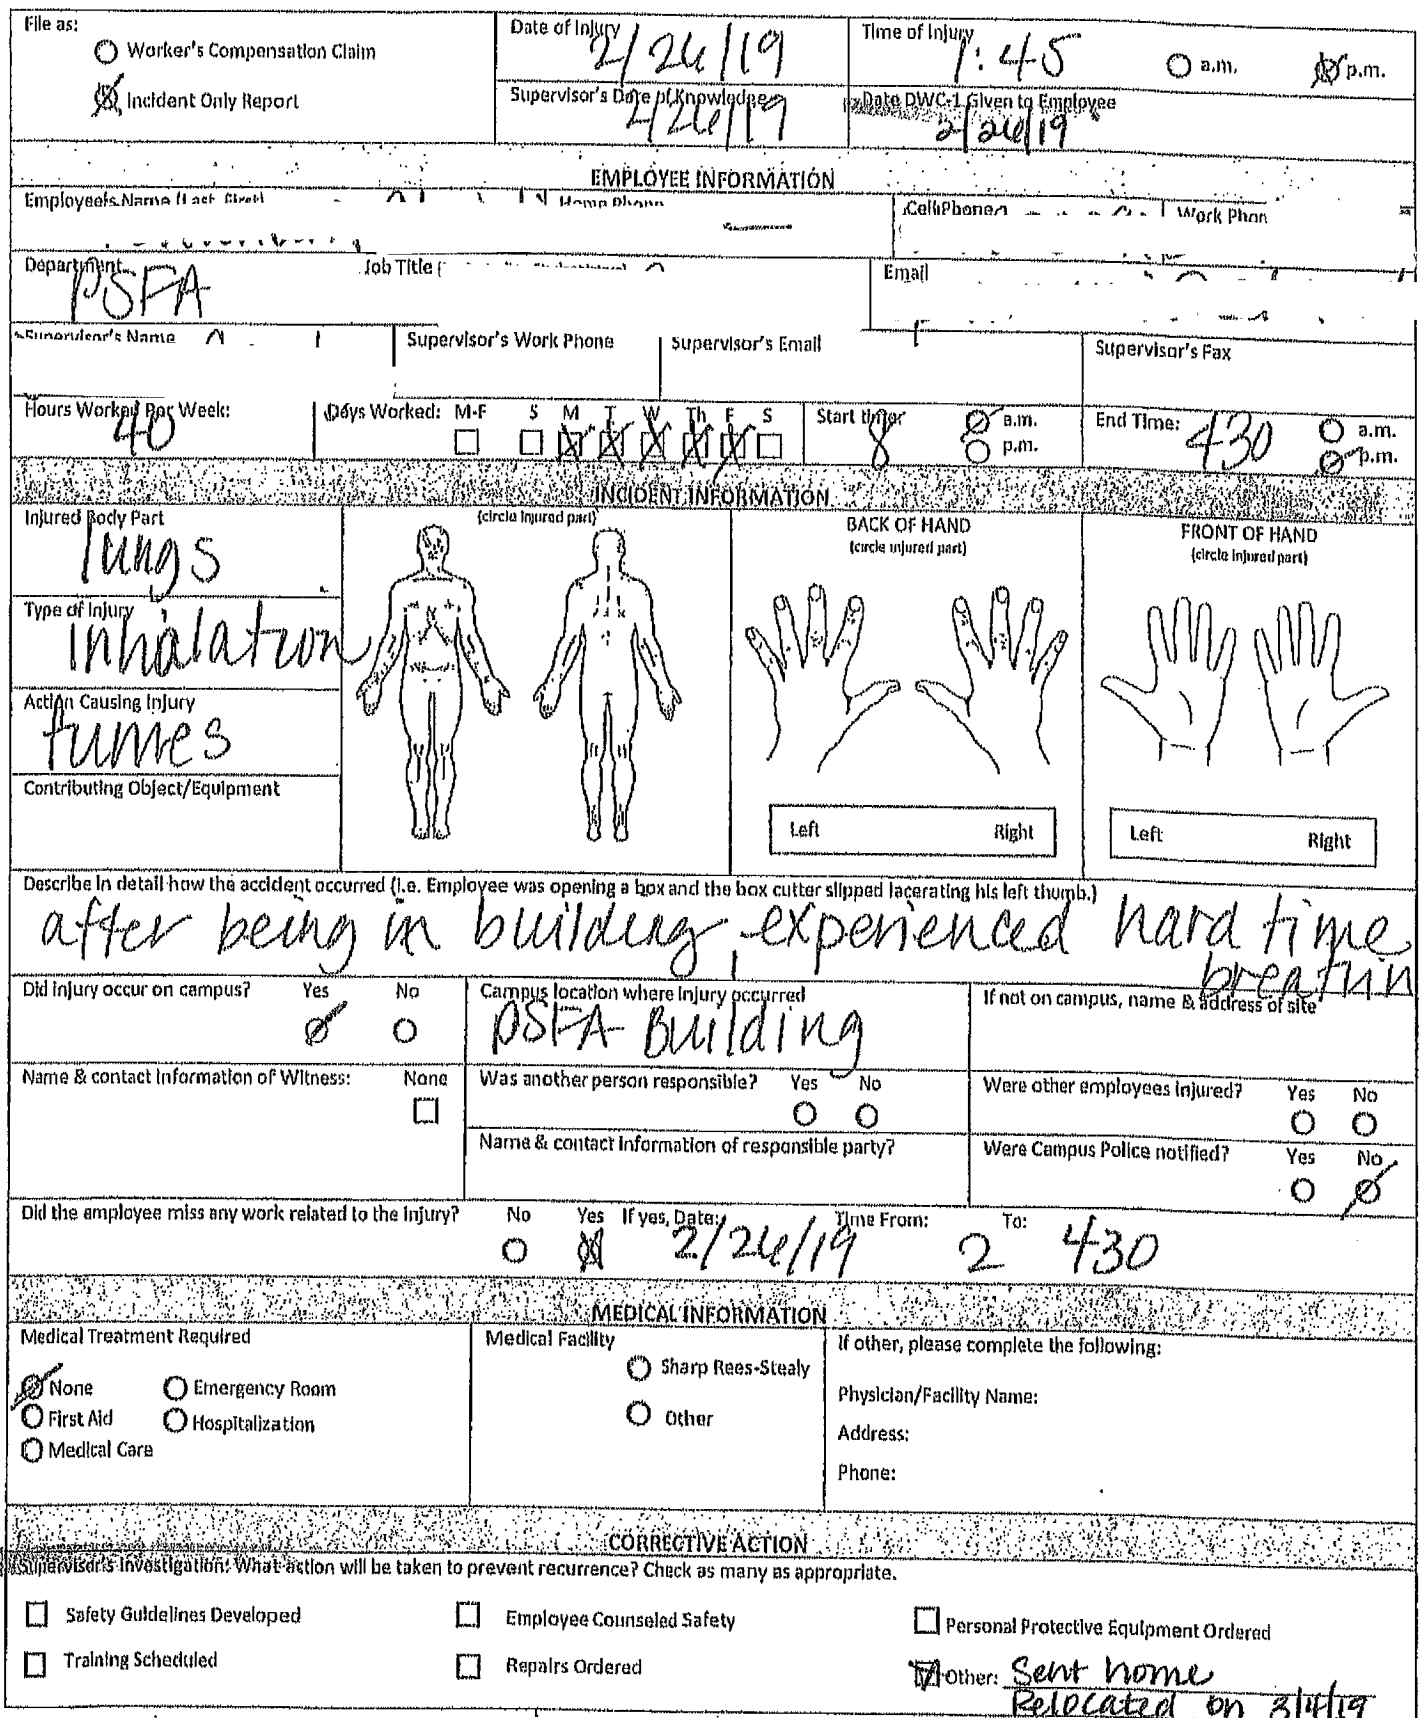 File as:
Worker's Compensation Claim
Incident Only Report
Date of Injury
2/26/19
Time of Injury
1:45
a.m.
p.m.
Supervisor's Date of Knowledge
2/26/19
Date DWC-1 Given to Employee
2/26/19
EMPLOYEE INFORMATION
Employee's Name (Last, First)
Home Phone
Cell Phone
Work Phon
Department
PSFA
Job Title (
Email
Supervisor's Name
Supervisor's Work Phone
Supervisor's Email
Supervisor's Fax
Hours Worked Per Week:
40
Days Worked: M-F S M T W Th F S
Start time:
8
a.m.
p.m.
End Time:
430
a.m.
p.m.
INCIDENT INFORMATION
Injured Body Part
lungs
Type of Injury
inhalation
Action Causing Injury
fumes
Contributing Object/Equipment
(circle injured part)
BACK OF HAND
(circle injured part)
Left Right
FRONT OF HAND
(circle injured part)
Left Right
Describe in detail how the accident occurred (i.e. Employee was opening a box and the box cutter slipped lacerating his left thumb.)
after being in building, experienced hard time
breathin
Did injury occur on campus? Yes No
Campus location where injury occurred
PSFA Building
If not on campus, name & address of site
Name & contact information of Witness: None
Was another person responsible? Yes No
Were other employees injured? Yes No
Name & contact information of responsible party?
Were Campus Police notified? Yes No
Did the employee miss any work related to the injury? No Yes If yes, Date: 2/26/19 Time From: 2 To: 430
MEDICAL INFORMATION
Medical Treatment Required
None Emergency Room
First Aid Hospitalization
Medical Care
Medical Facility
Sharp Rees-Stealy
Other
If other, please complete the following:
Physician/Facility Name:
Address:
Phone:
CORRECTIVE ACTION
Supervisor's Investigation: What action will be taken to prevent recurrence? Check as many as appropriate.
Safety Guidelines Developed
Employee Counseled Safety
Personal Protective Equipment Ordered
Training Scheduled
Repairs Ordered
Other: Sent home
Relocated on 3/4/19